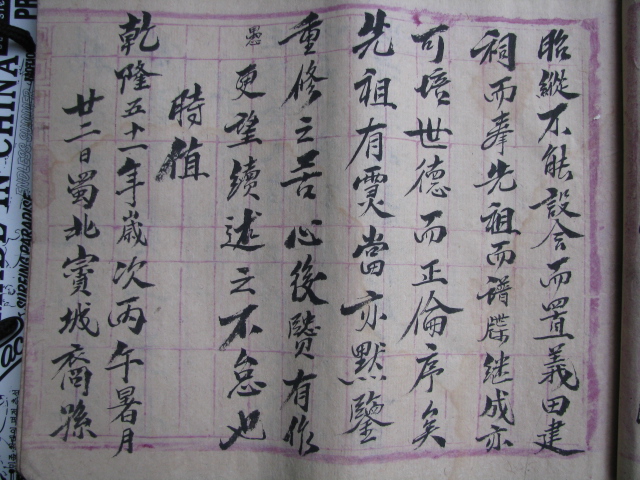 眙縱不能設会而置義田建
祠而奉先祖而谱牒继成亦
可培世德而正倫序矣
先祖有灵當亦默鑒
重修之苦心後賢有作
愚更望續述之不怠也
時值
乾隆五十一年歲次丙午暑月
廿二日蜀北賨城裔孫
IN CHINA
SURFING PARADISE